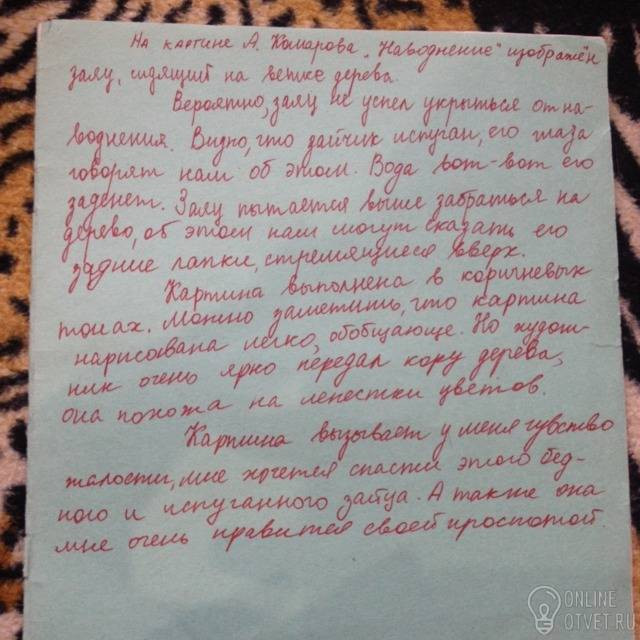 На картине А. Комарова „Наводнение" изображён
заяц, сидящий на ветке дерева.
Вероятно, заяц не успел укрыться от на-
воднения. Видно, что зайчик испуган, его глаза
говорят нам об этом. Вода вот-вот его
заденет. Заяц пытается выше забраться на
дерево, об этом нам могут сказать его
задние лапки, стремящиеся вверх.
Картина выполнена в коричневых
тонах. Можно заметить, что картина
нарисована легко, обобщающе. Но худож-
ник очень ярко передал кору дерева,
она похожа на лепестки цветов.
Картина вызывает у меня чувство
жалости, мне хочется спасти этого бед-
ного и испуганного зайца. А также она
мне очень нравится своей простотой
ONLINE
OTVET.RU